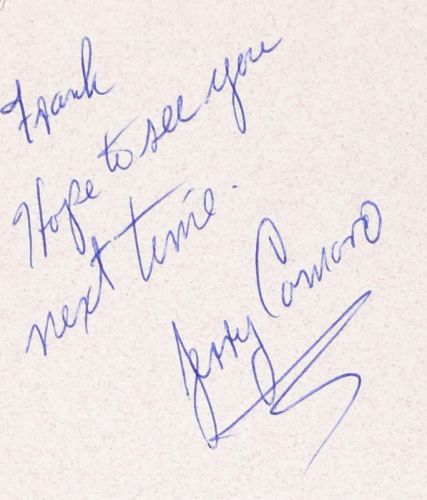 Frank
Hope to see you
next time.
Jerry Camaro